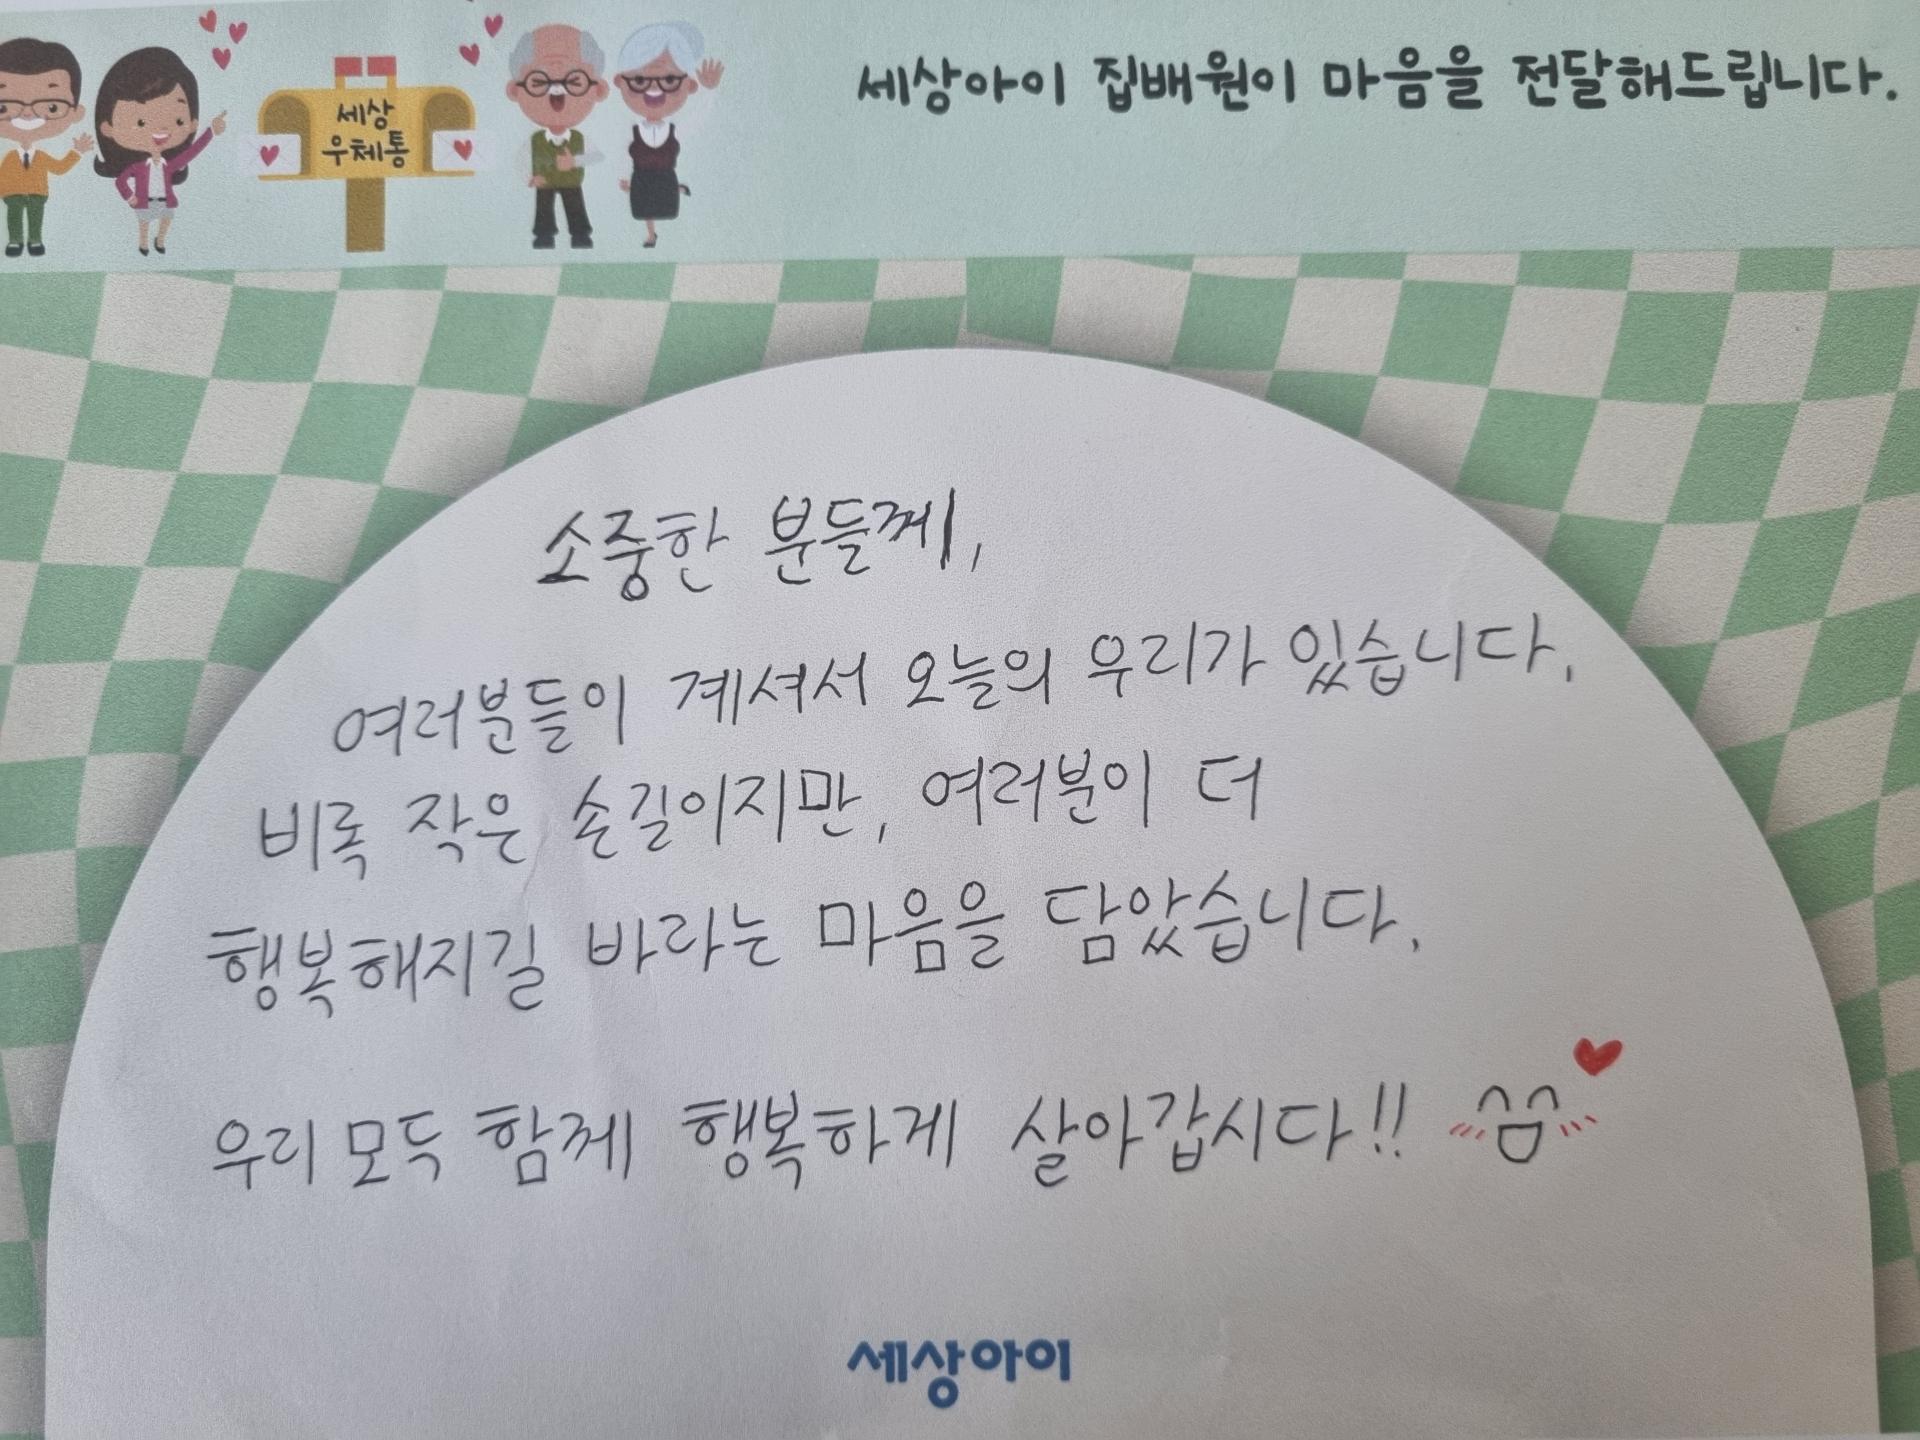 세상아이 집배원이 마음을 전달해드립니다.
세상
우체통
소중한 분들께,
여러분들이 계셔서 오늘의 우리가 있습니다.
비록 작은 손길이지만, 여러분이 더
행복해지길 바라는 마음을 담았습니다.
우리 모두 함께 행복하게 살아갑시다!!
세상아이